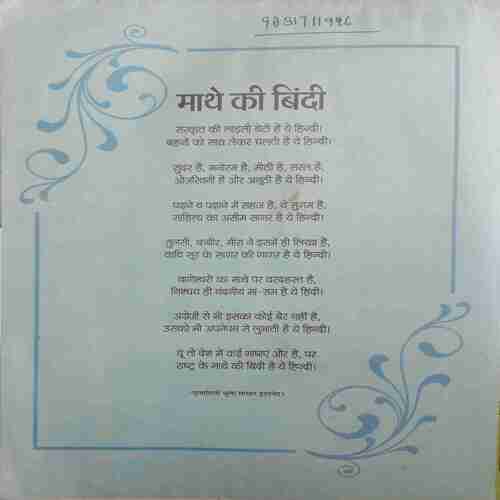 माथे की बिंदी
संस्कृत की लाड़ली बेटी है ये हिन्दी।
बहनों को साथ लेकर चलती है ये हिन्दी।
सुंदर है, मनोरम है, मीठी है, सरल है,
ओजस्विनी है और अनूठी है ये हिन्दी।
पढ़ने व पढ़ाने में सहज है, ये सुगम है,
साहित्य का असीम सागर है ये हिन्दी।
तुलसी, कबीर, मीरा ने इसमें ही लिखा है,
कवि सूर के सागर की गागर है ये हिन्दी।
वागेश्वरी का माथे पर वरदहस्त है,
निश्चय ही वंदनीय मां-सम है ये हिंदी।
अंग्रेजी से भी इसका कोई बैर नहीं है,
उसको भी अपनेपन से लुभाती है ये हिन्दी।
यूं तो देश में कई भाषाएं और हैं, पर
राष्ट्र के माथे की बिंदी है ये हिन्दी।